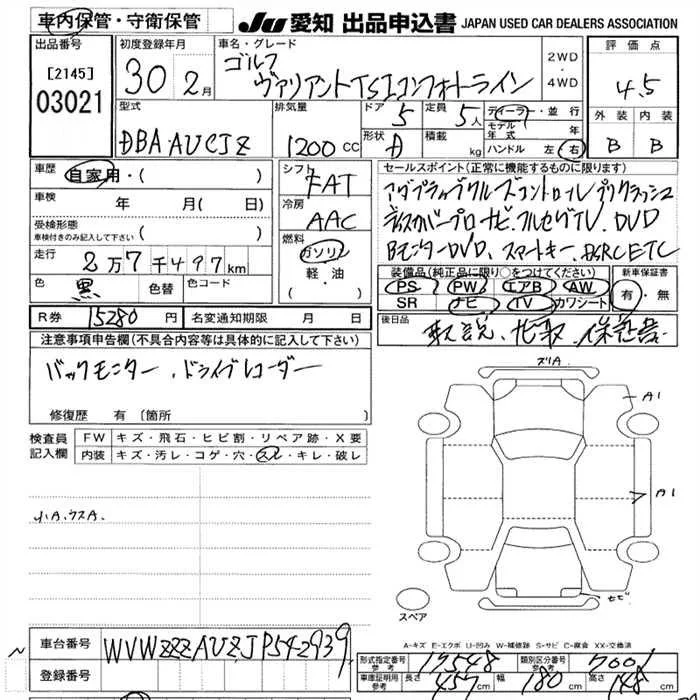 車内保管・守衛保管
JU 愛知 出品申込書 JAPAN USED CAR DEALERS ASSOCIATION
出品番号
[2145]
03021
初度登録年月
30 2月
車名・グレード
ゴルフ
ヴァリアントTSIコンフォートライン
2WD
・
4WD
評価点
4.5
外装 内装
B B
型式
DBA AUCJZ
排気量
1200 CC
ドア 5
形状
定員 5人
積載 kg
ディーラー・並行
モデル年式 年
ハンドル 左 右
車歴
自家用・( )
車検 年 月( 日)
受検形態
車検付きのみ記入して下さい ( )
走行
2万7千497km
色 黒 色替 色コード
シフト
FAT
冷房
AAC
燃料
ガソリン
軽・油
( )
セールスポイント(正常に機能するものに限ります)
アダプティブクルーズコントロール プリクラッシュ
ディスカバープロ ナビ.フルセグTV.DVD
Bモニター DVD、スマートキー. ETC
装備品(純正品に限り○をつけてください)
PS PW エアB AW
SR ナビ TV カワシート
新車保証書
有・無
R券 15280円 名変通知期限 月 日
後日品
取説、ナビ取、保証書
注意事項申告欄(不具合内容等は具体的に記入して下さい)
バックモニター.ドライブレコーダー
修復歴 有(箇所 )
検査員記入欄
FW キズ・飛石・ヒビ割・リペア跡・X要
内装 キズ・汚レ・コゲ・穴・スレ・キレ・破レ
小.A.ウスA.
ズリA
A1
A1
スペア
A=キズ E=エクボ U=凹み W=補修跡 S=サビ C=腐食 XX=交換済
車台番号 WVWZZZAUZJP542939
登録番号
形式指定番号 参考 17548 類別区分番号 参考 7001
車庫証明用 参考 長さ 457cm 幅 180cm 高さ 148cm